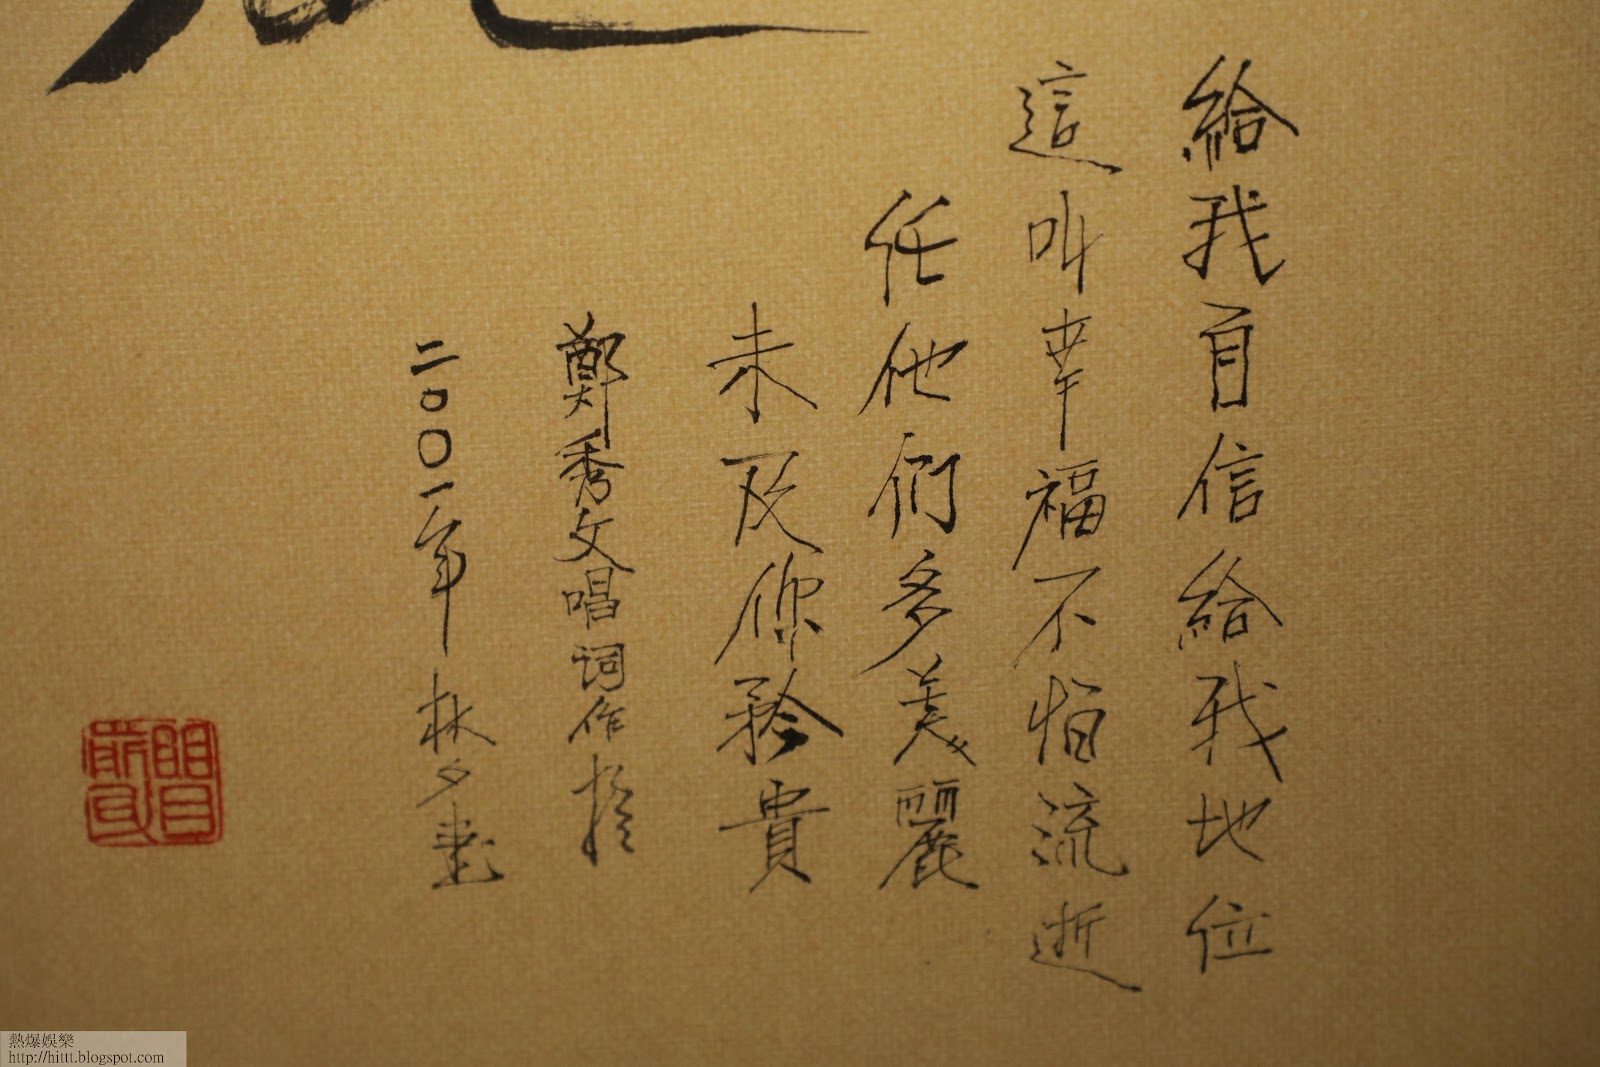 給我自信給我地位
這叫幸福不怕流逝
任他們多美麗
未及你矜貴
鄭秀文唱詞作
二〇〇一年 林夕書
熱爆娛樂
http://hittt.blogspot.com